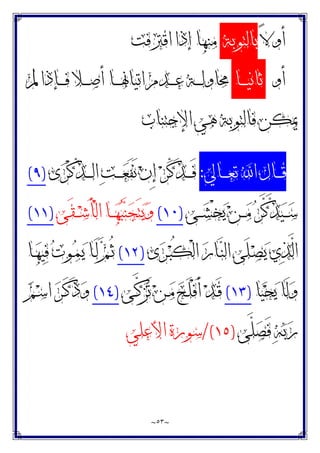 أولاً بالتوبة منها إذا اقترفت
أو ثانياً محاولة عدم اتيانها أصلا فإذا لم
يمكن فالتوبة هي الإجتناب
قال الله تعالي: فَذَكِّرْ إِن نَّفَعَتِ الذِّكْرَىٰ (٩)
سَيَذَّكَّرُ مَن يَخْشَىٰ (١٠) وَيَتَجَنَّبُهَا الْأَشْقَى (١١)
الَّذِي يَصْلَى النَّارَ الْكُبْرَىٰ (١٢) ثُمَّ لَا يَمُوتُ فِيهَا
وَلَا يَحْيَا (١٣) قَدْ أَفْلَحَ مَن تَزَكَّىٰ (١٤) وَذَكَرَ اسْمَ
رَبِّهِ فَصَلَّىٰ (١٥)/سورة الأعلي
~٥٣~